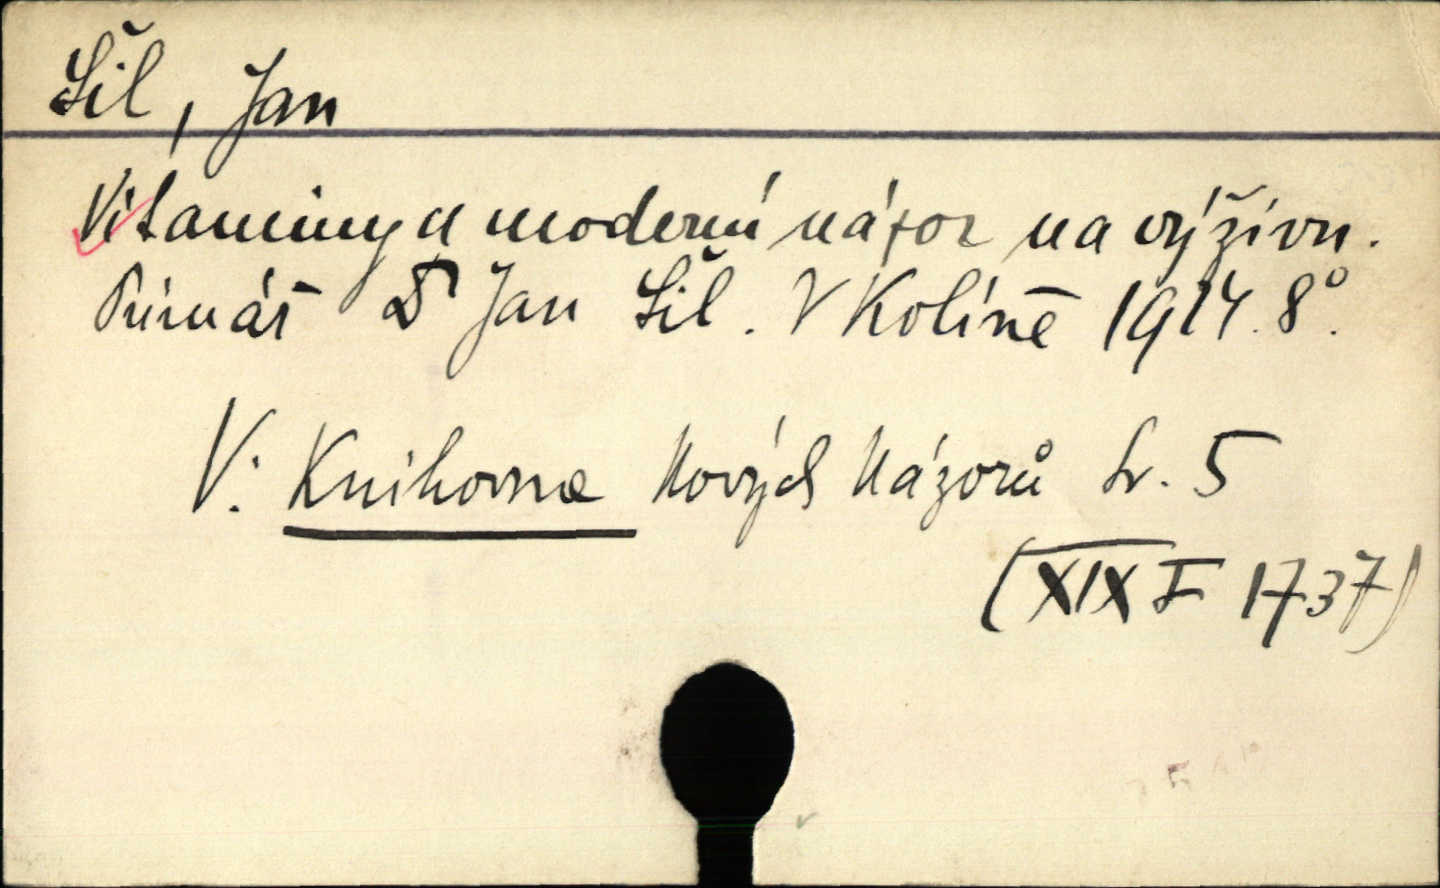 Šíl, Jan
Vitaminy a moderní názor na výživu.
Primář Dr Jan Šíl. V Kolíně 1924. 8°.
V: Knihovna Nových Názorů Sv. 5
(XIX F 1737)